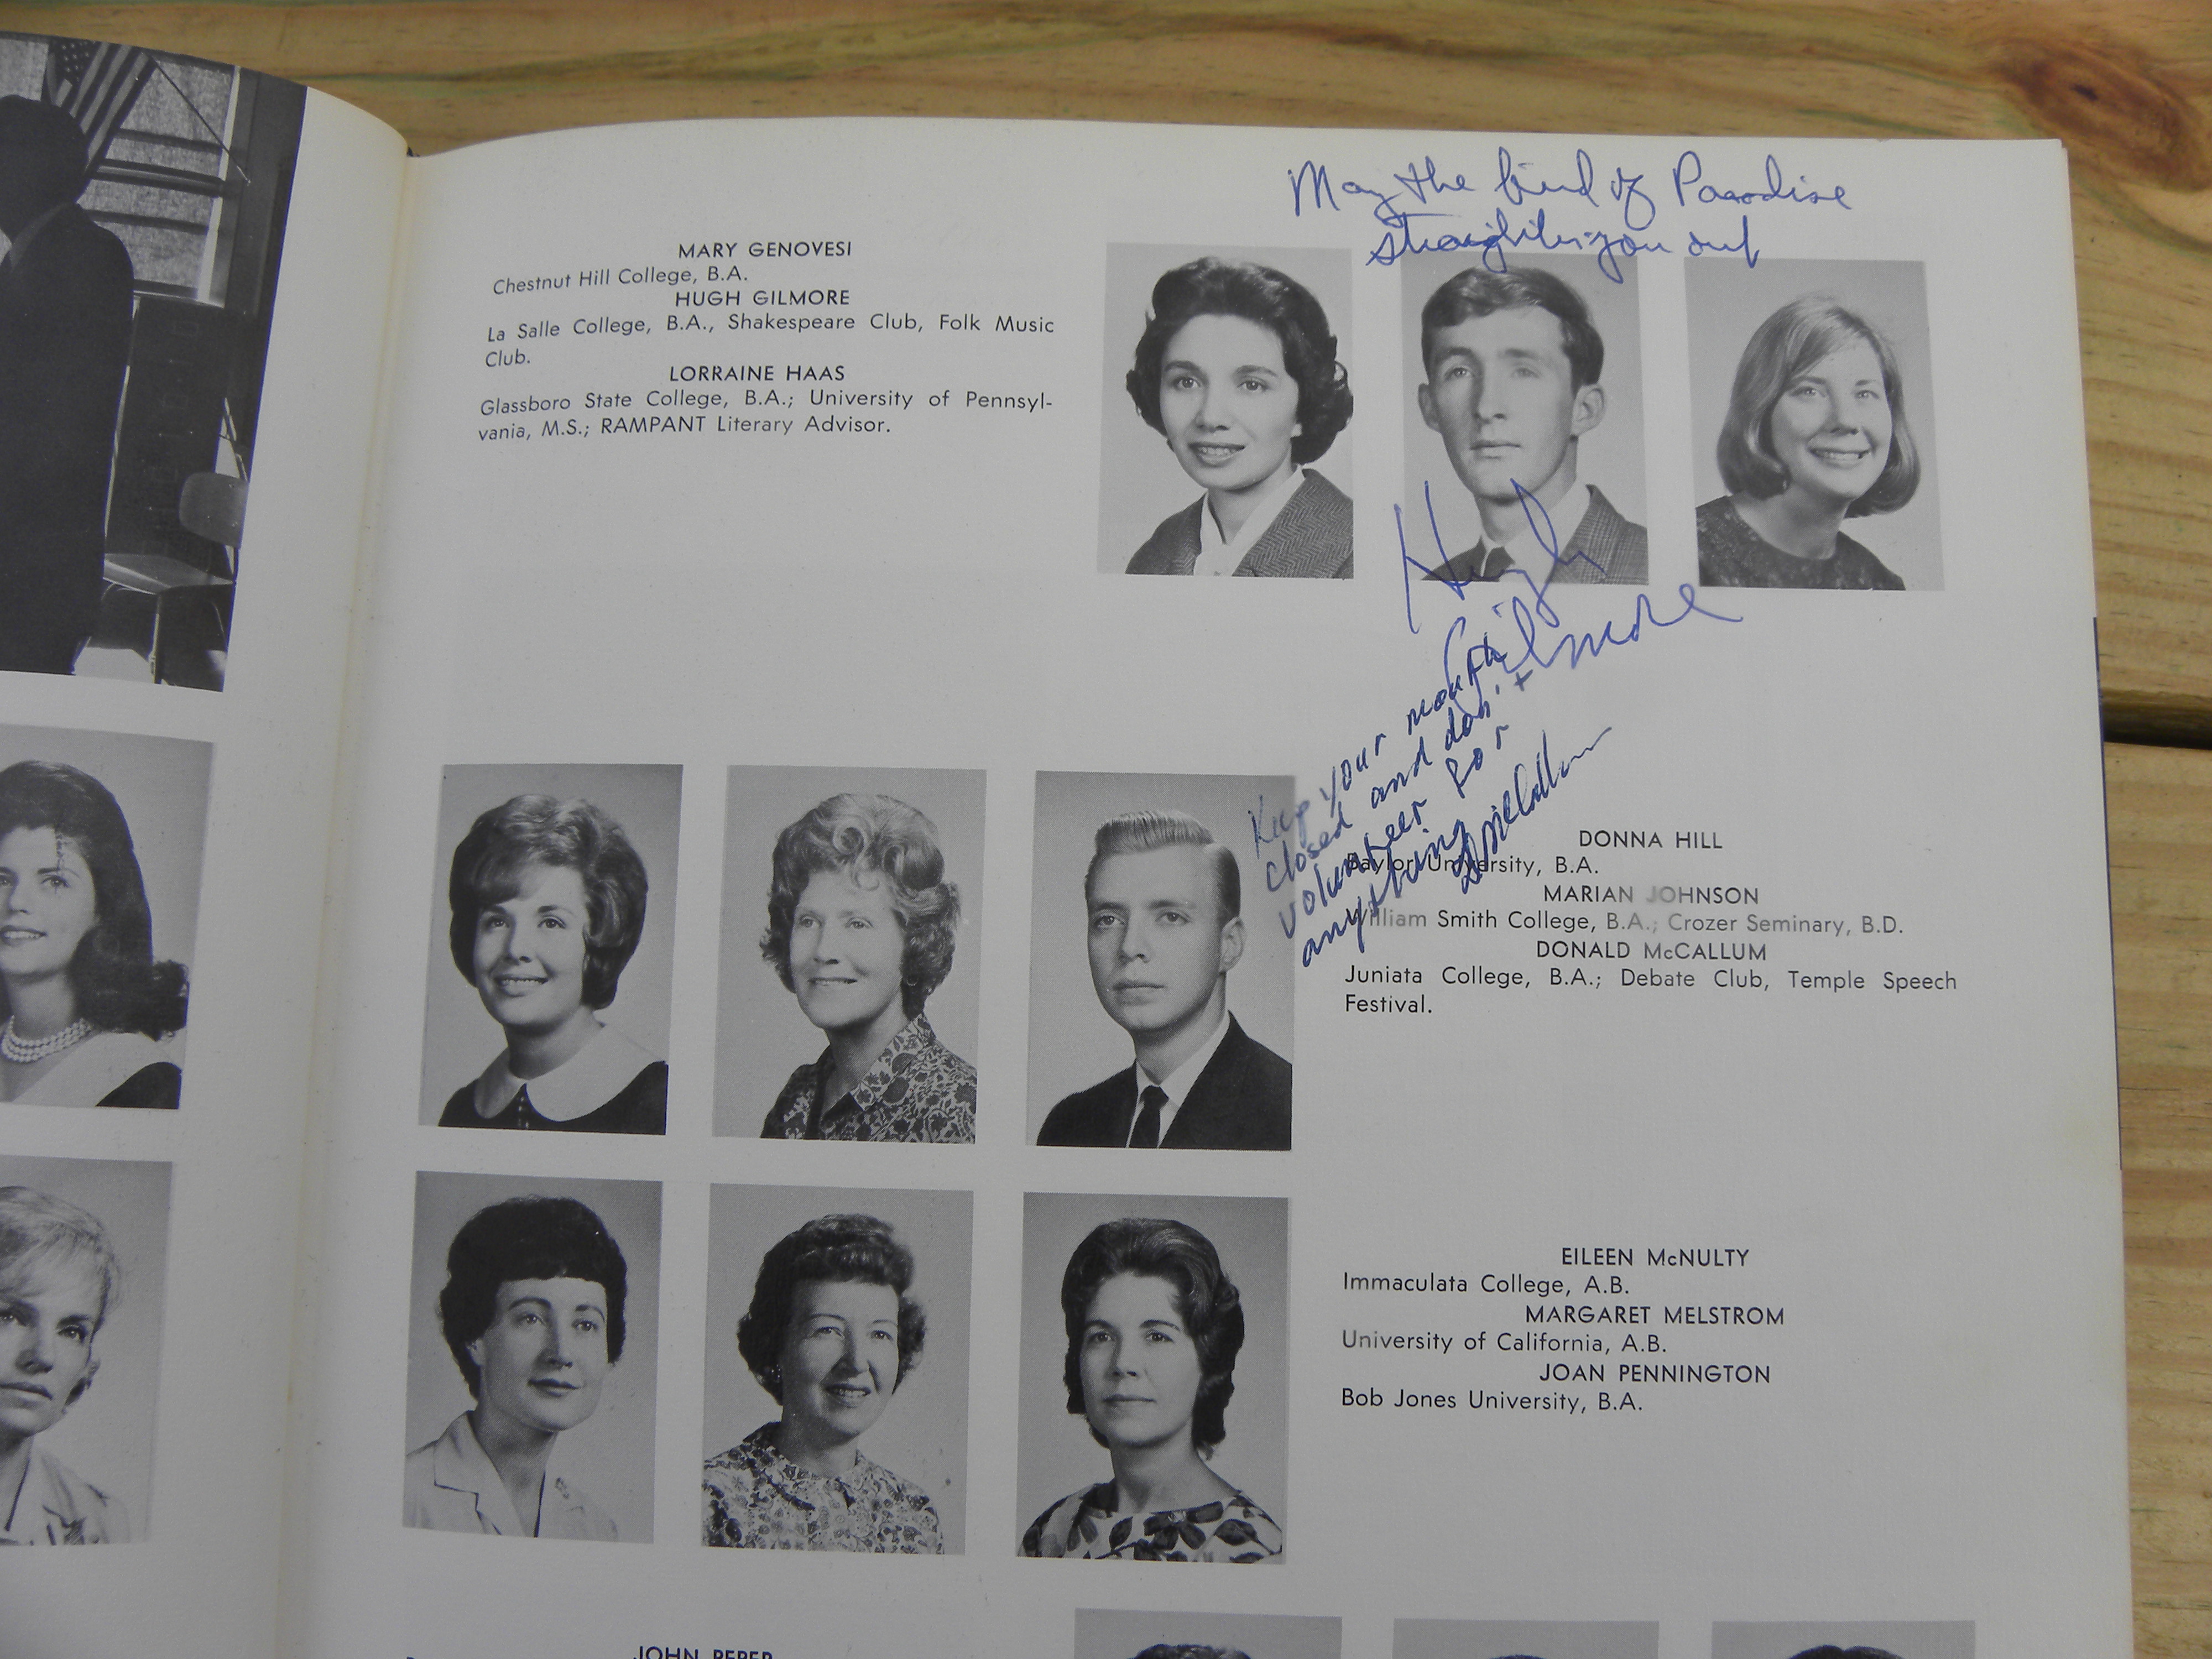 May the bird of Paradise
straighten you out
MARY GENOVESI
Chestnut Hill College, B.A.
HUGH GILMORE
La Salle College, B.A., Shakespeare Club, Folk Music
Club.
LORRAINE HAAS
Glassboro State College, B.A.; University of Pennsyl-
vania, M.S.; RAMPANT Literary Advisor.
Hugh
Gilmore
Keep your mouth
closed and don't
volunteer for
anything
D McCallum
DONNA HILL
Baylor University, B.A.
MARIAN JOHNSON
William Smith College, B.A.; Crozer Seminary, B.D.
DONALD McCALLUM
Juniata College, B.A.; Debate Club, Temple Speech
Festival.
EILEEN McNULTY
Immaculata College, A.B.
MARGARET MELSTROM
University of California, A.B.
JOAN PENNINGTON
Bob Jones University, B.A.
JOHN